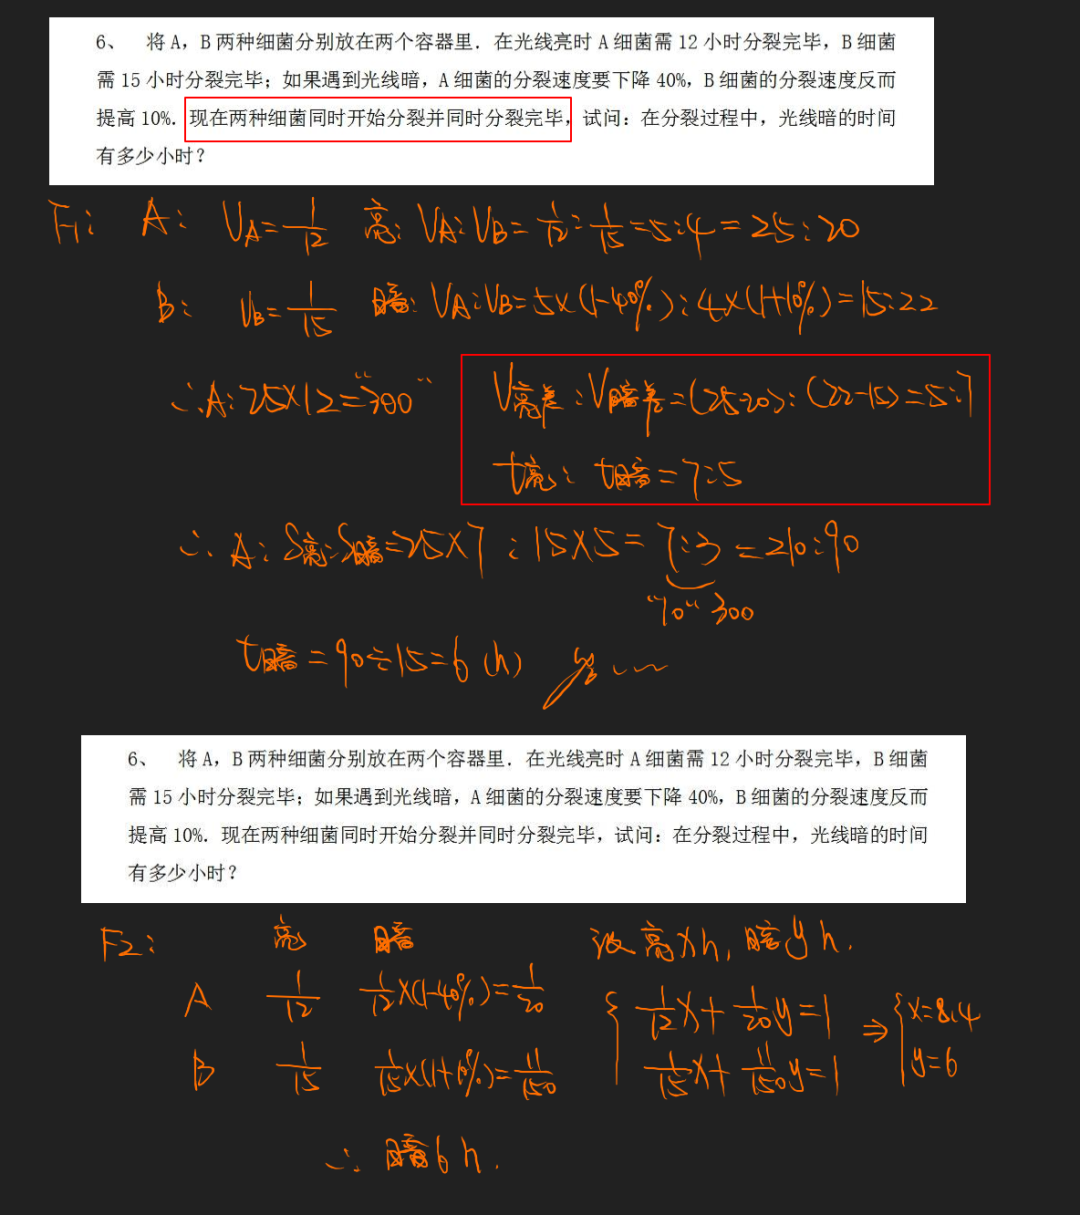 6、 将 A，B 两种细菌分别放在两个容器里．在光线亮时 A 细菌需 12 小时分裂完毕，B 细菌
需 15 小时分裂完毕；如果遇到光线暗，A 细菌的分裂速度要下降 40%，B 细菌的分裂速度反而
提高 10%．现在两种细菌同时开始分裂并同时分裂完毕，试问：在分裂过程中，光线暗的时间
有多少小时？
F1: A: VA=1/12 亮: VA:VB=1/12:1/15=5:4=25:20
B: VB=1/15 暗: VA:VB=5×(1-40%):4×(1+10%)=15:22
∴A:25×12="300" V亮差:V暗差=(25-20):(22-15)=5:7
t亮: t暗=7:5
∴A: S亮:S暗=25×7:15×5=7:3=210:90
"10" 300
t暗=90÷15=6(h)
6、 将 A，B 两种细菌分别放在两个容器里．在光线亮时 A 细菌需 12 小时分裂完毕，B 细菌
需 15 小时分裂完毕；如果遇到光线暗，A 细菌的分裂速度要下降 40%，B 细菌的分裂速度反而
提高 10%．现在两种细菌同时开始分裂并同时分裂完毕，试问：在分裂过程中，光线暗的时间
有多少小时？
F2: 亮 暗 设亮xh, 暗yh.
A 1/12 1/12×(1-40%)=1/20 { 1/12x+1/20y=1 ⇒ { x=8.4
B 1/15 1/15×(1+10%)=11/150 1/15x+11/150y=1 y=6
∴暗6h.